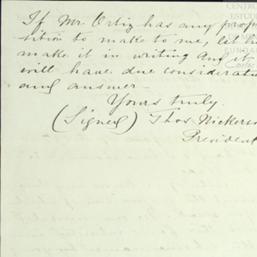 If Mr Ortiz has any prop
ition to make to me, let
make it in writing and it
will have due considerati
and answer.
Yours truly
(Signed) Thos Nickers
President